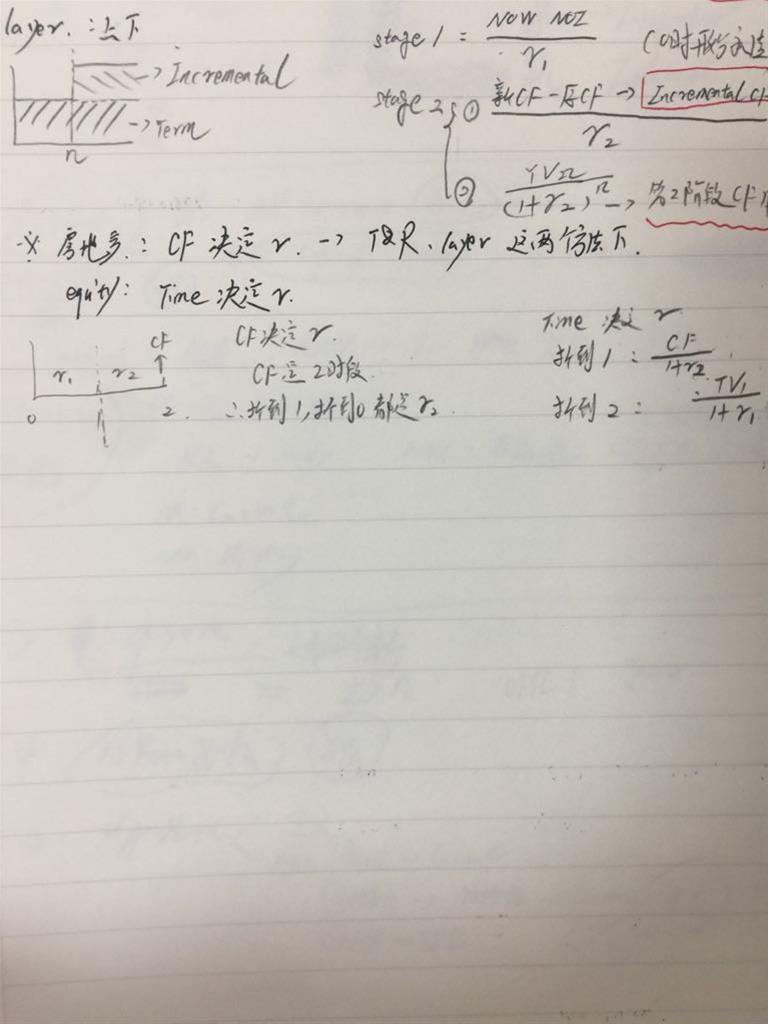 layer. : 上下
→ Incremental
→ Term
n
stage 1 = NOW NOI / r₁ (0时开始永续
stage 2 { ① 新CF - 原CF → Incremental CF / r₂
② TV₂ / (1+r₂)ⁿ → 第2阶段CF
※ 房地产 : CF 决定 r. → T&R、layer 这两个方法下.
equity : Time 决定 r.
CF
r₁ r₂
0 1 2.
CF决定 r.
CF是2时段
∴折到1,折到0都是r₂.
Time 决定 r
折到1 : CF / 1+r₂
折到2 : TV₁ / 1+r₁